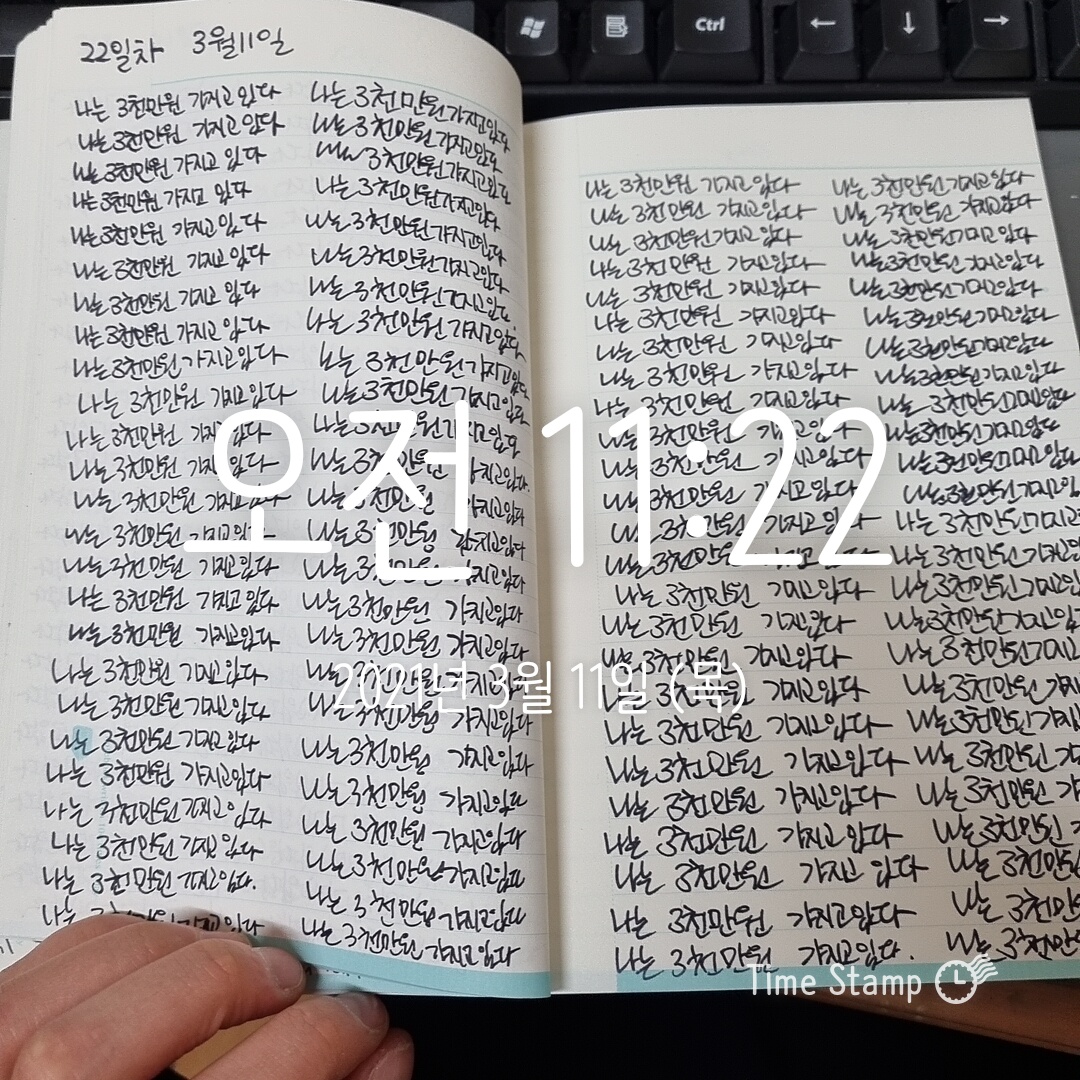 Ctrl
22일차 3월11일
나는 3천만원 가지고 있다
나는 3천만원 가지고 있다
나는 3천만원 가지고 있다
나는 3천만원 가지고 있다
나는 3천만원 가지고 있다
나는 3천만원 가지고 있다
나는 3천만원 가지고 있다
나는 3천만원 가지고 있다
나는 3천만원 가지고 있다
나는 3천만원 가지고 있다
나는 3천만원 가지고 있다
나는 3천만원 가지고 있다
나는 3천만원 가지고 있다
나는 3천만원 가지고 있다
나는 3천만원 가지고 있다
나는 3천만원 가지고 있다
나는 3천만원 가지고 있다
나는 3천만원 가지고 있다
나는 3천만원 가지고 있다
나는 3천만원 가지고 있다
나는 3천만원 가지고 있다
나는 3천만원 가지고 있다
나는 3천만원 가지고 있다
나는 3천만원 가지고 있다.
나는 3천만원 가지고 있다
나는 3천만원 가지고 있다
나는 3천만원 가지고 있다
나는 3천만원 가지고 있다
나는 3천만원 가지고 있다
나는 3천만원 가지고 있다
나는 3천만원 가지고 있다
나는 3천만원 가지고 있다
나는 3천만원 가지고 있다
나는 3천만원 가지고 있다
나는 3천만원 가지고 있다
나는 3천만원 가지고 있다
나는 3천만원 가지고 있다.
나는 3천만원 가지고 있다
나는 3천만원 가지고 있다
나는 3천만원 가지고 있다
나는 3천만원 가지고 있다
나는 3천만원 가지고 있다
나는 3천만원 가지고 있다
나는 3천만원 가지고 있다
나는 3천만원 가지고 있다
나는 3천만원 가지고 있다
나는 3천만원 가지고 있다
나는 3천만원 가지고 있다
나는 3천만원 가지고 있다
나는 3천만원 가지고 있다
나는 3천만원 가지고 있다
나는 3천만원 가지고 있다
나는 3천만원 가지고 있다
나는 3천만원 가지고 있다
나는 3천만원 가지고 있다
나는 3천만원 가지고 있다
나는 3천만원 가지고 있다
나는 3천만원 가지고 있다
나는 3천만원 가지고 있다
나는 3천만원 가지고 있다
나는 3천만원 가지고 있다
나는 3천만원 가지고 있다
나는 3천만원 가지고 있다
나는 3천만원 가지고 있다
나는 3천만원 가지고 있다
나는 3천만원 가지고 있다
나는 3천만원 가지고 있다
나는 3천만원 가지고 있다
나는 3천만원 가지고 있다
나는 3천만원 가지고 있다
나는 3천만원 가지고 있다
나는 3천만원 가지고 있다
나는 3천만원 가지고 있다
나는 3천만원 가지고 있다
나는 3천만원 가지고 있다
나는 3천만원 가지고 있다.
나는 3천만원 가지고 있다
나는 3천만원 가지고 있다
나는 3천만원 가지고 있다
나는 3천만원 가지고 있다
나는 3천만원 가지고 있다
나는 3천만원 가지고 있다
나는 3천만원 가지고 있다
나는 3천만원 가지고 있다
나는 3천만원 가지고 있다
나는 3천만원 가지고 있다
나는 3천만원 가지고 있다
나는 3천만원 가지고 있
나는 3천만원 가지고
나는 3천만원 가지고
나는 3천만원 가지고
나는 3천만원 가지고
나는 3천만원 가지고
나는 3천만원 가지
나는 3천만원 가지
나는 3천만원 가
나는 3천만원 가
나는 3천만원
나는 3천만원
나는 3천만
나는 3천만
오전 11:22
2021년 3월 11일 (목)
Time Stamp